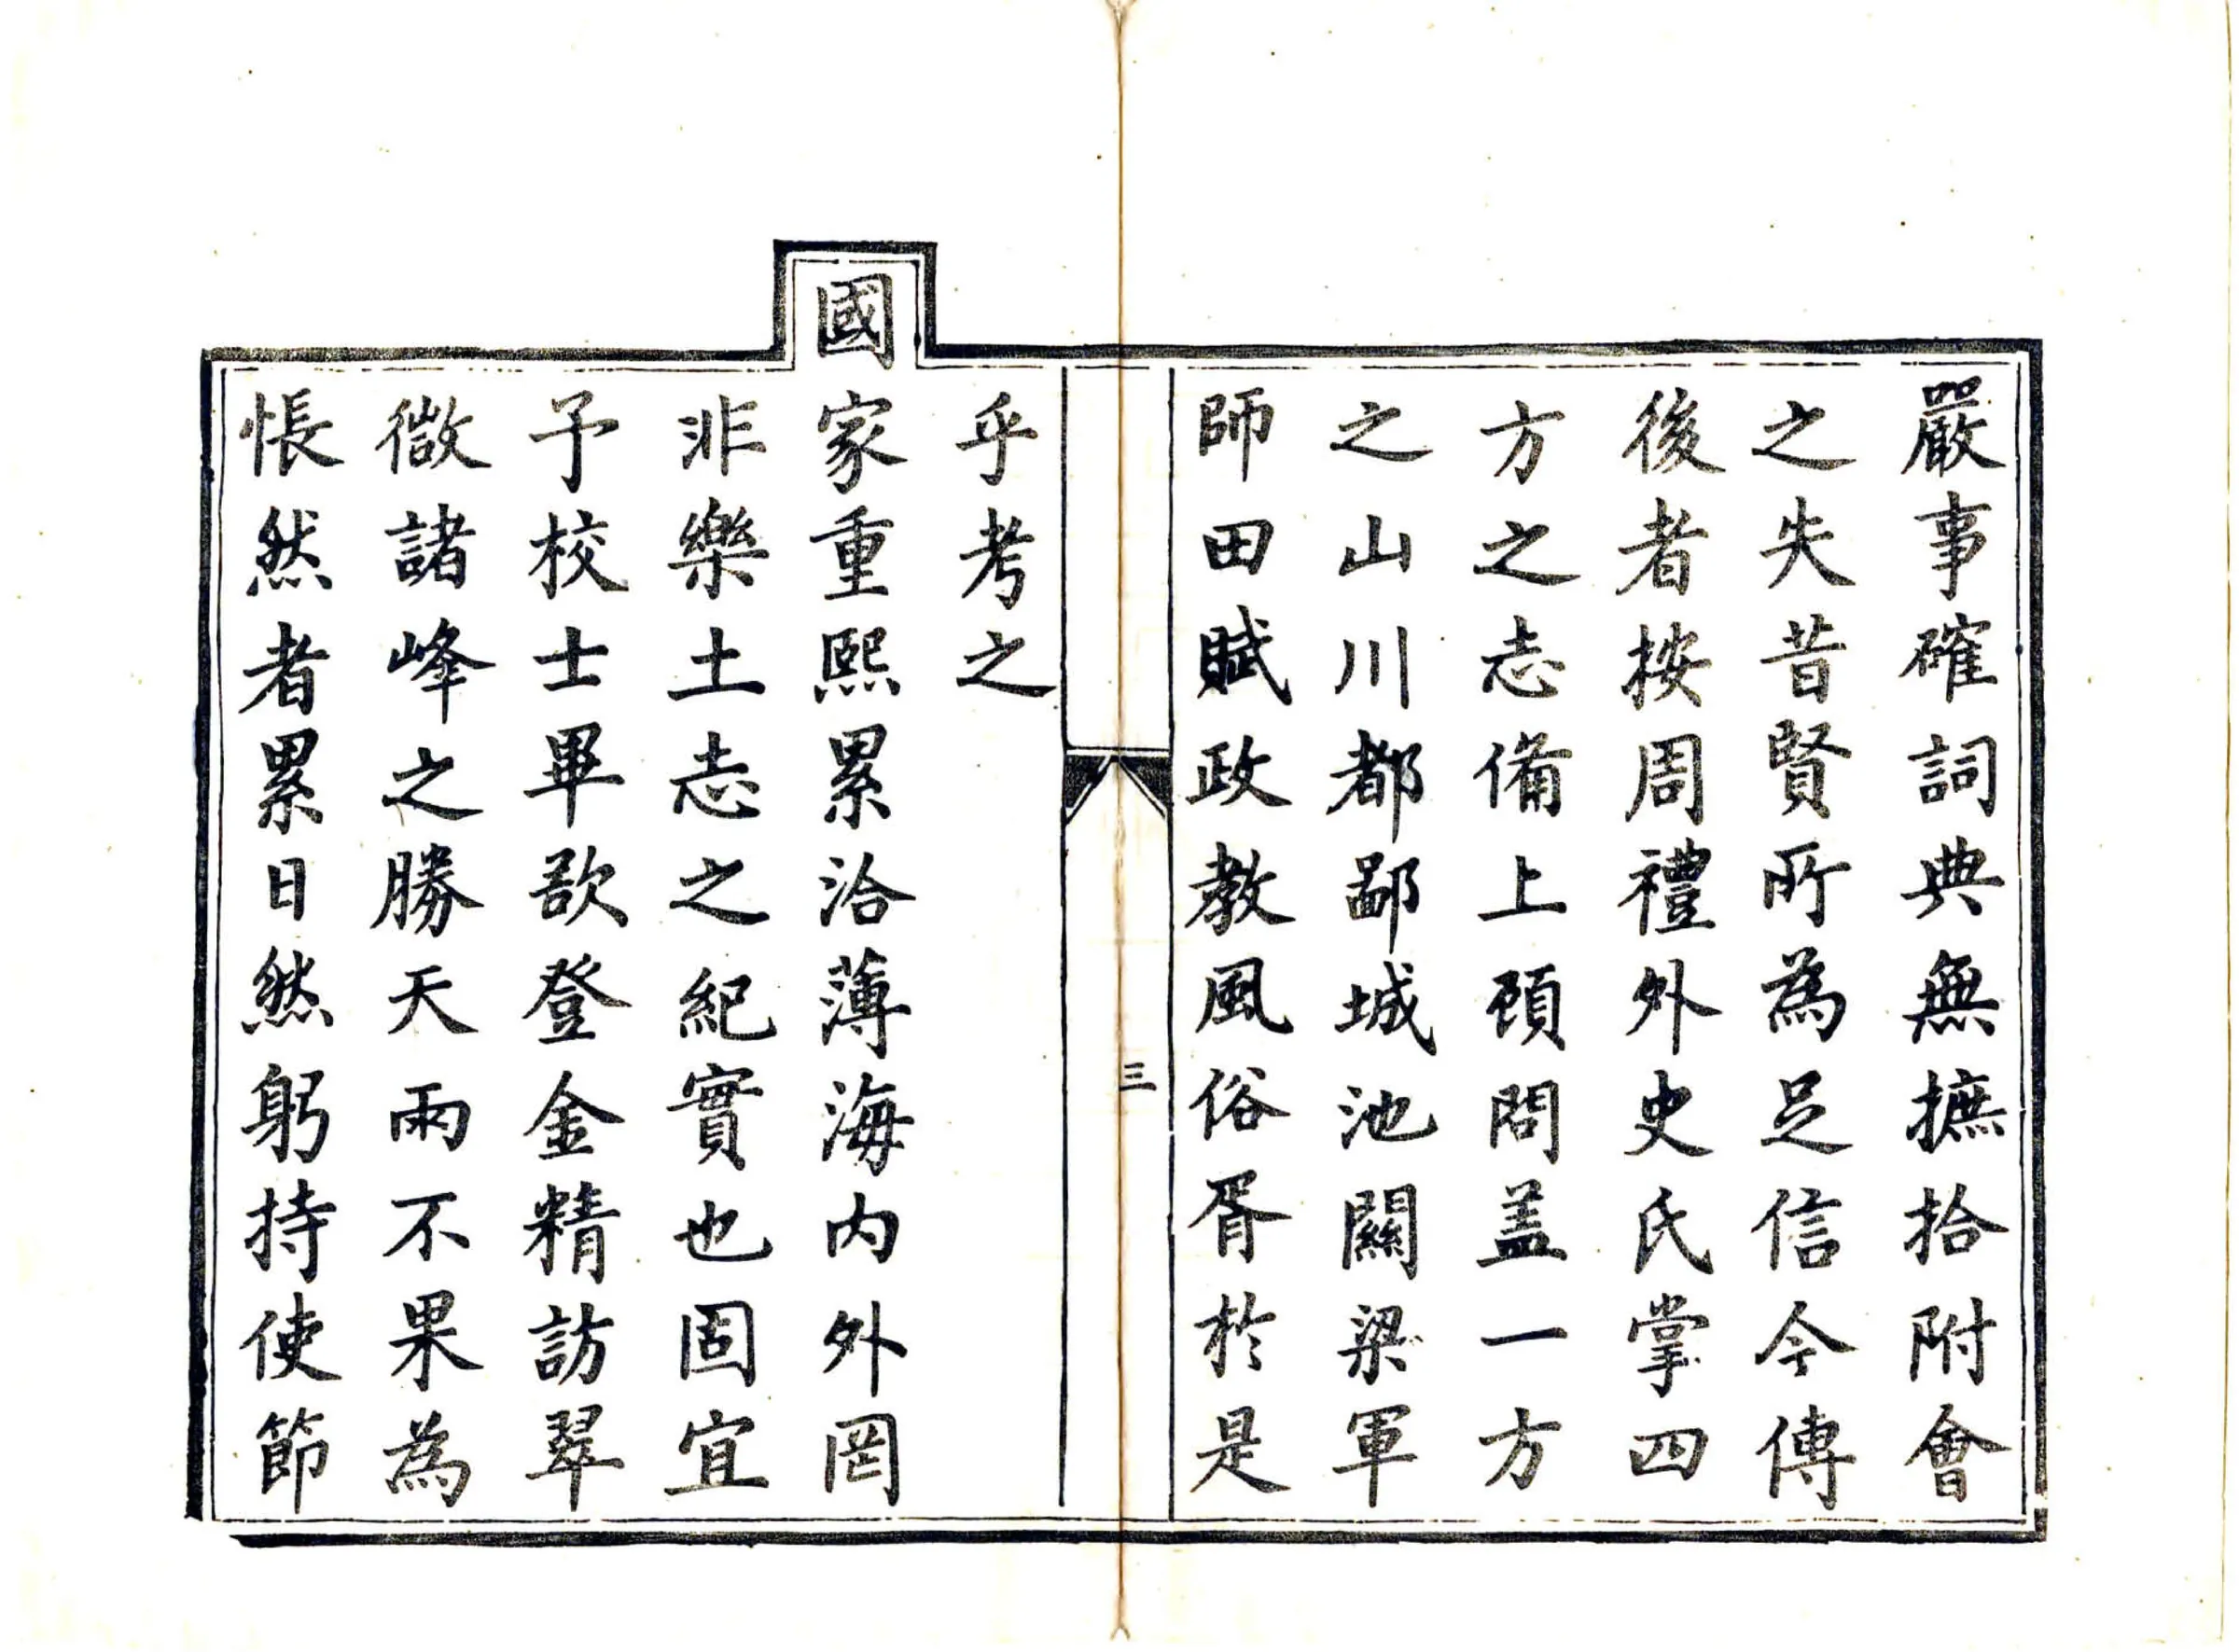 嚴事確詞典無摭拾附會
之失昔賢所為足信今傳
後者按周禮外史氏掌四
方之志備上顧問盖一方
之山川都鄙城池關梁軍
師田賦政教風俗胥於是
三
乎考之
國家重熙累洽薄海内外罔
非樂土志之紀實也固宜
予校士畢欲登金精訪翠
微諸峰之勝天雨不果為
悵然者累日然躬持使節